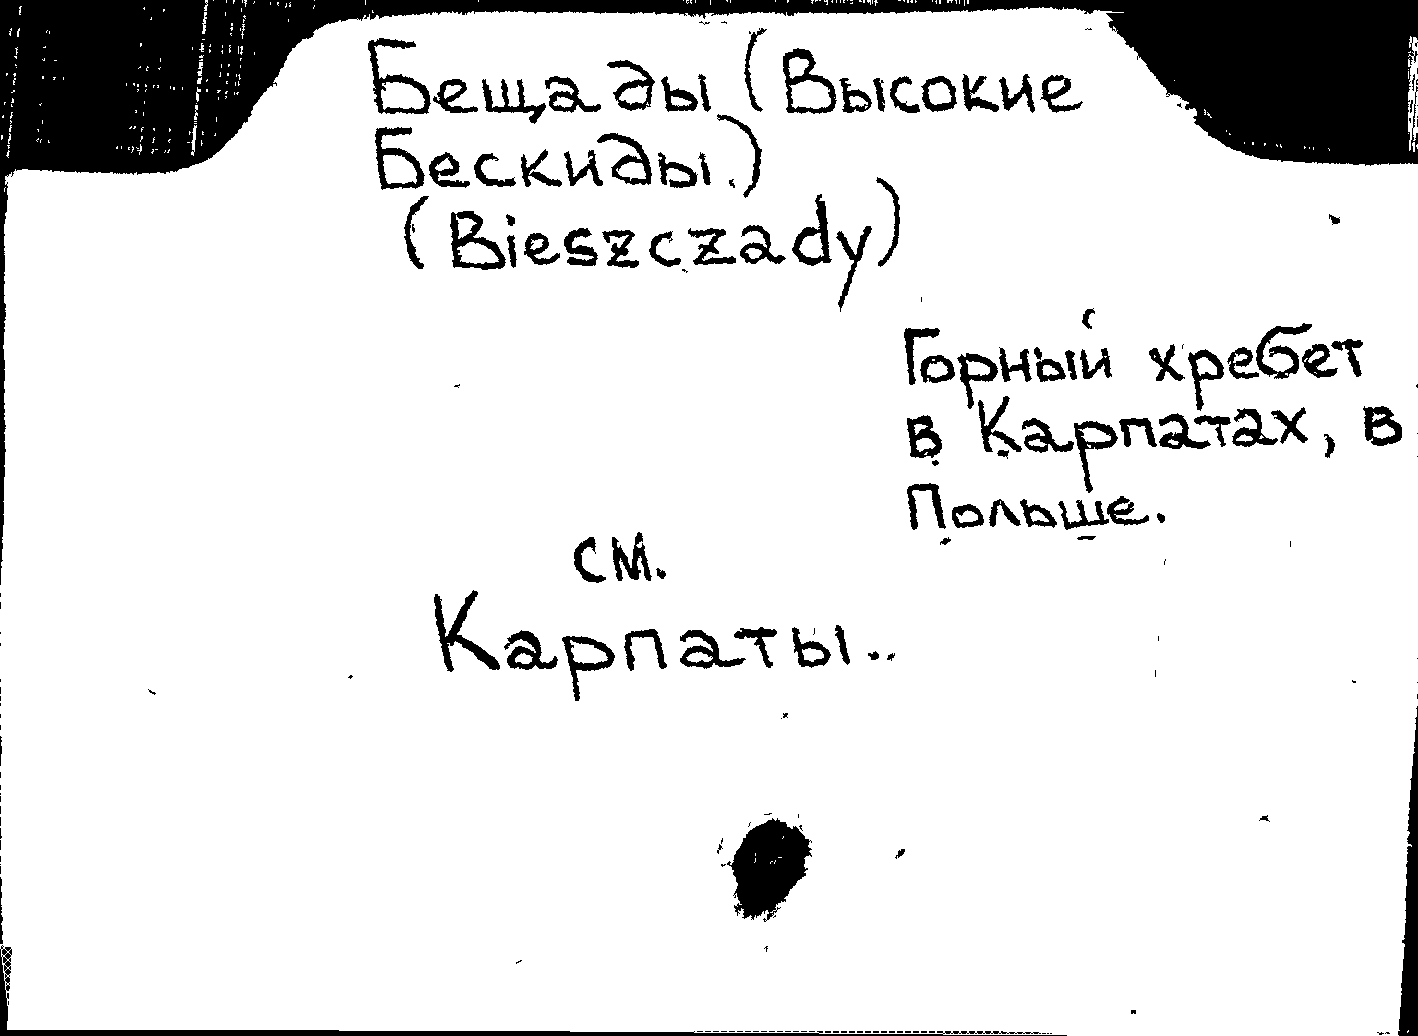 Бещады (Высокие
Бескиды.)
(Bieszczady)
Горный хребет
в Карпатах, в
Польше.
см.
Карпаты..